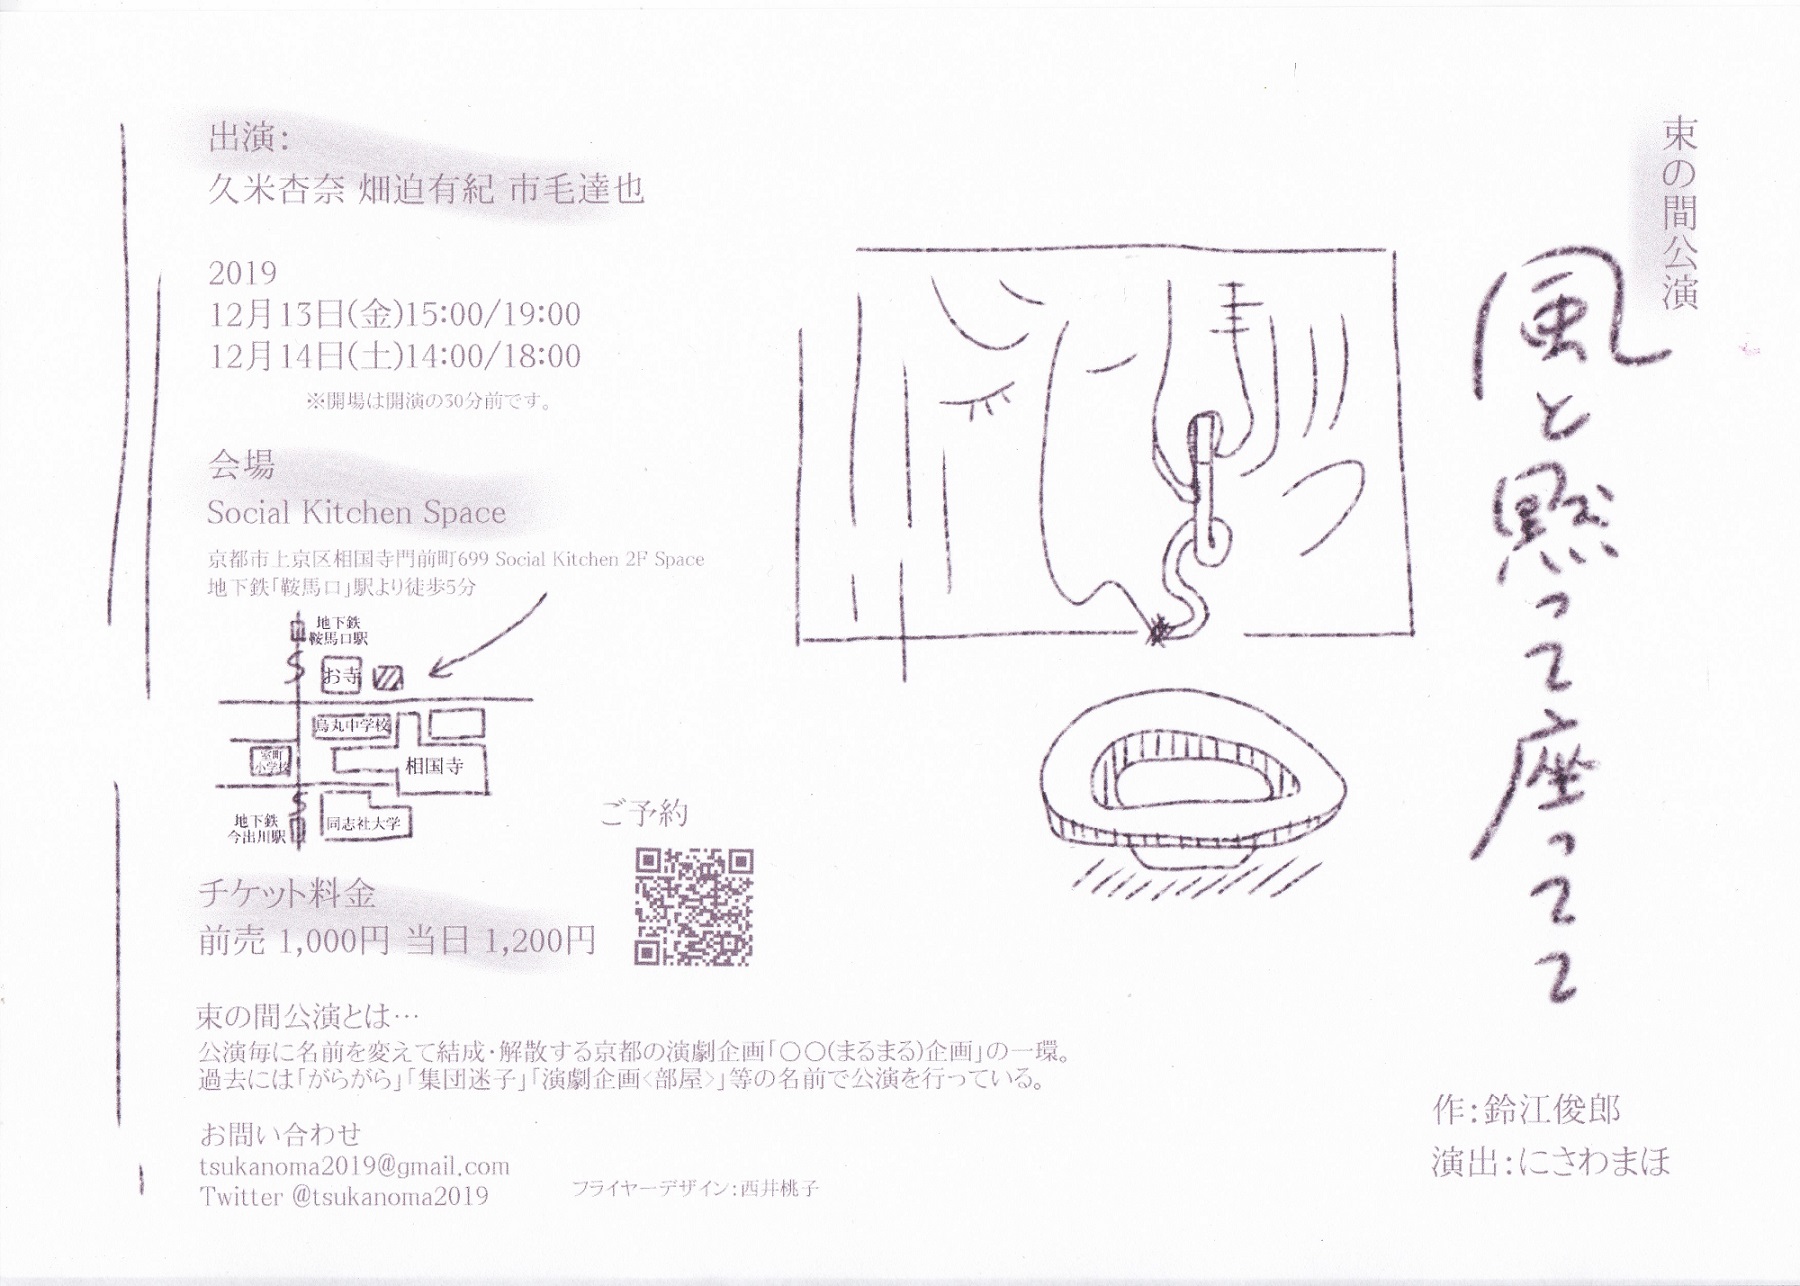 束の間公演
風と黙って座ってて
作:鈴江俊郎
演出:にさわまほ
出演:
久米杏奈 畑迫有紀 市毛達也
2019
12月13日(金)15:00/19:00
12月14日(土)14:00/18:00
※開場は開演の30分前です。
会場
Social Kitchen Space
京都市上京区相国寺門前町699 Social Kitchen 2F Space
地下鉄「鞍馬口」駅より徒歩5分
地下鉄
鞍馬口駅
お寺
烏丸中学校
室町
小学校
相国寺
地下鉄
今出川駅
同志社大学
ご予約
チケット料金
前売 1,000円 当日 1,200円
束の間公演とは…
公演毎に名前を変えて結成・解散する京都の演劇企画「〇〇(まるまる)企画」の一環。
過去には「がらがら」「集団迷子」「演劇企画<部屋>」等の名前で公演を行っている。
お問い合わせ
tsukanoma2019@gmail.com
Twitter @tsukanoma2019
フライヤーデザイン:西井桃子